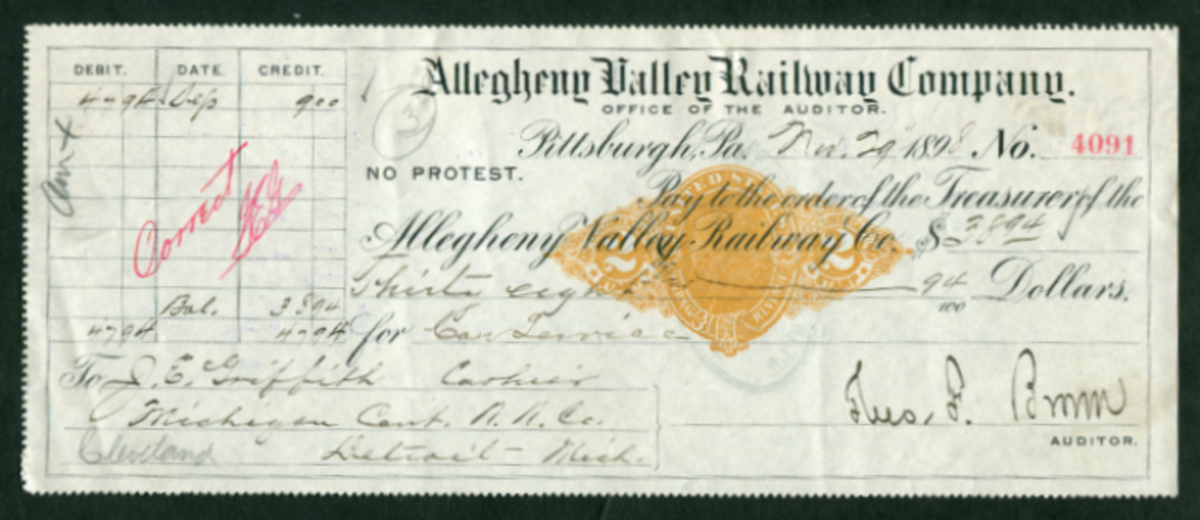 DEBIT. DATE. CREDIT.
4794 Dep 900
Correct
Bal. 3894
4794 4794
Allegheny Valley Railway Company.
OFFICE OF THE AUDITOR.
Pittsburgh, Pa. Nov. 29 1898 No. 4091
NO PROTEST.
Pay to the order of the Treasurer of the
Allegheny Valley Railway Co. $ 3894
Thirty eight 94/100 Dollars.
for Car Service
To J. E. Griffith Cashier
Michigan Cent. R. R. Co.
Cleveland Detroit - Mich.
AUDITOR.